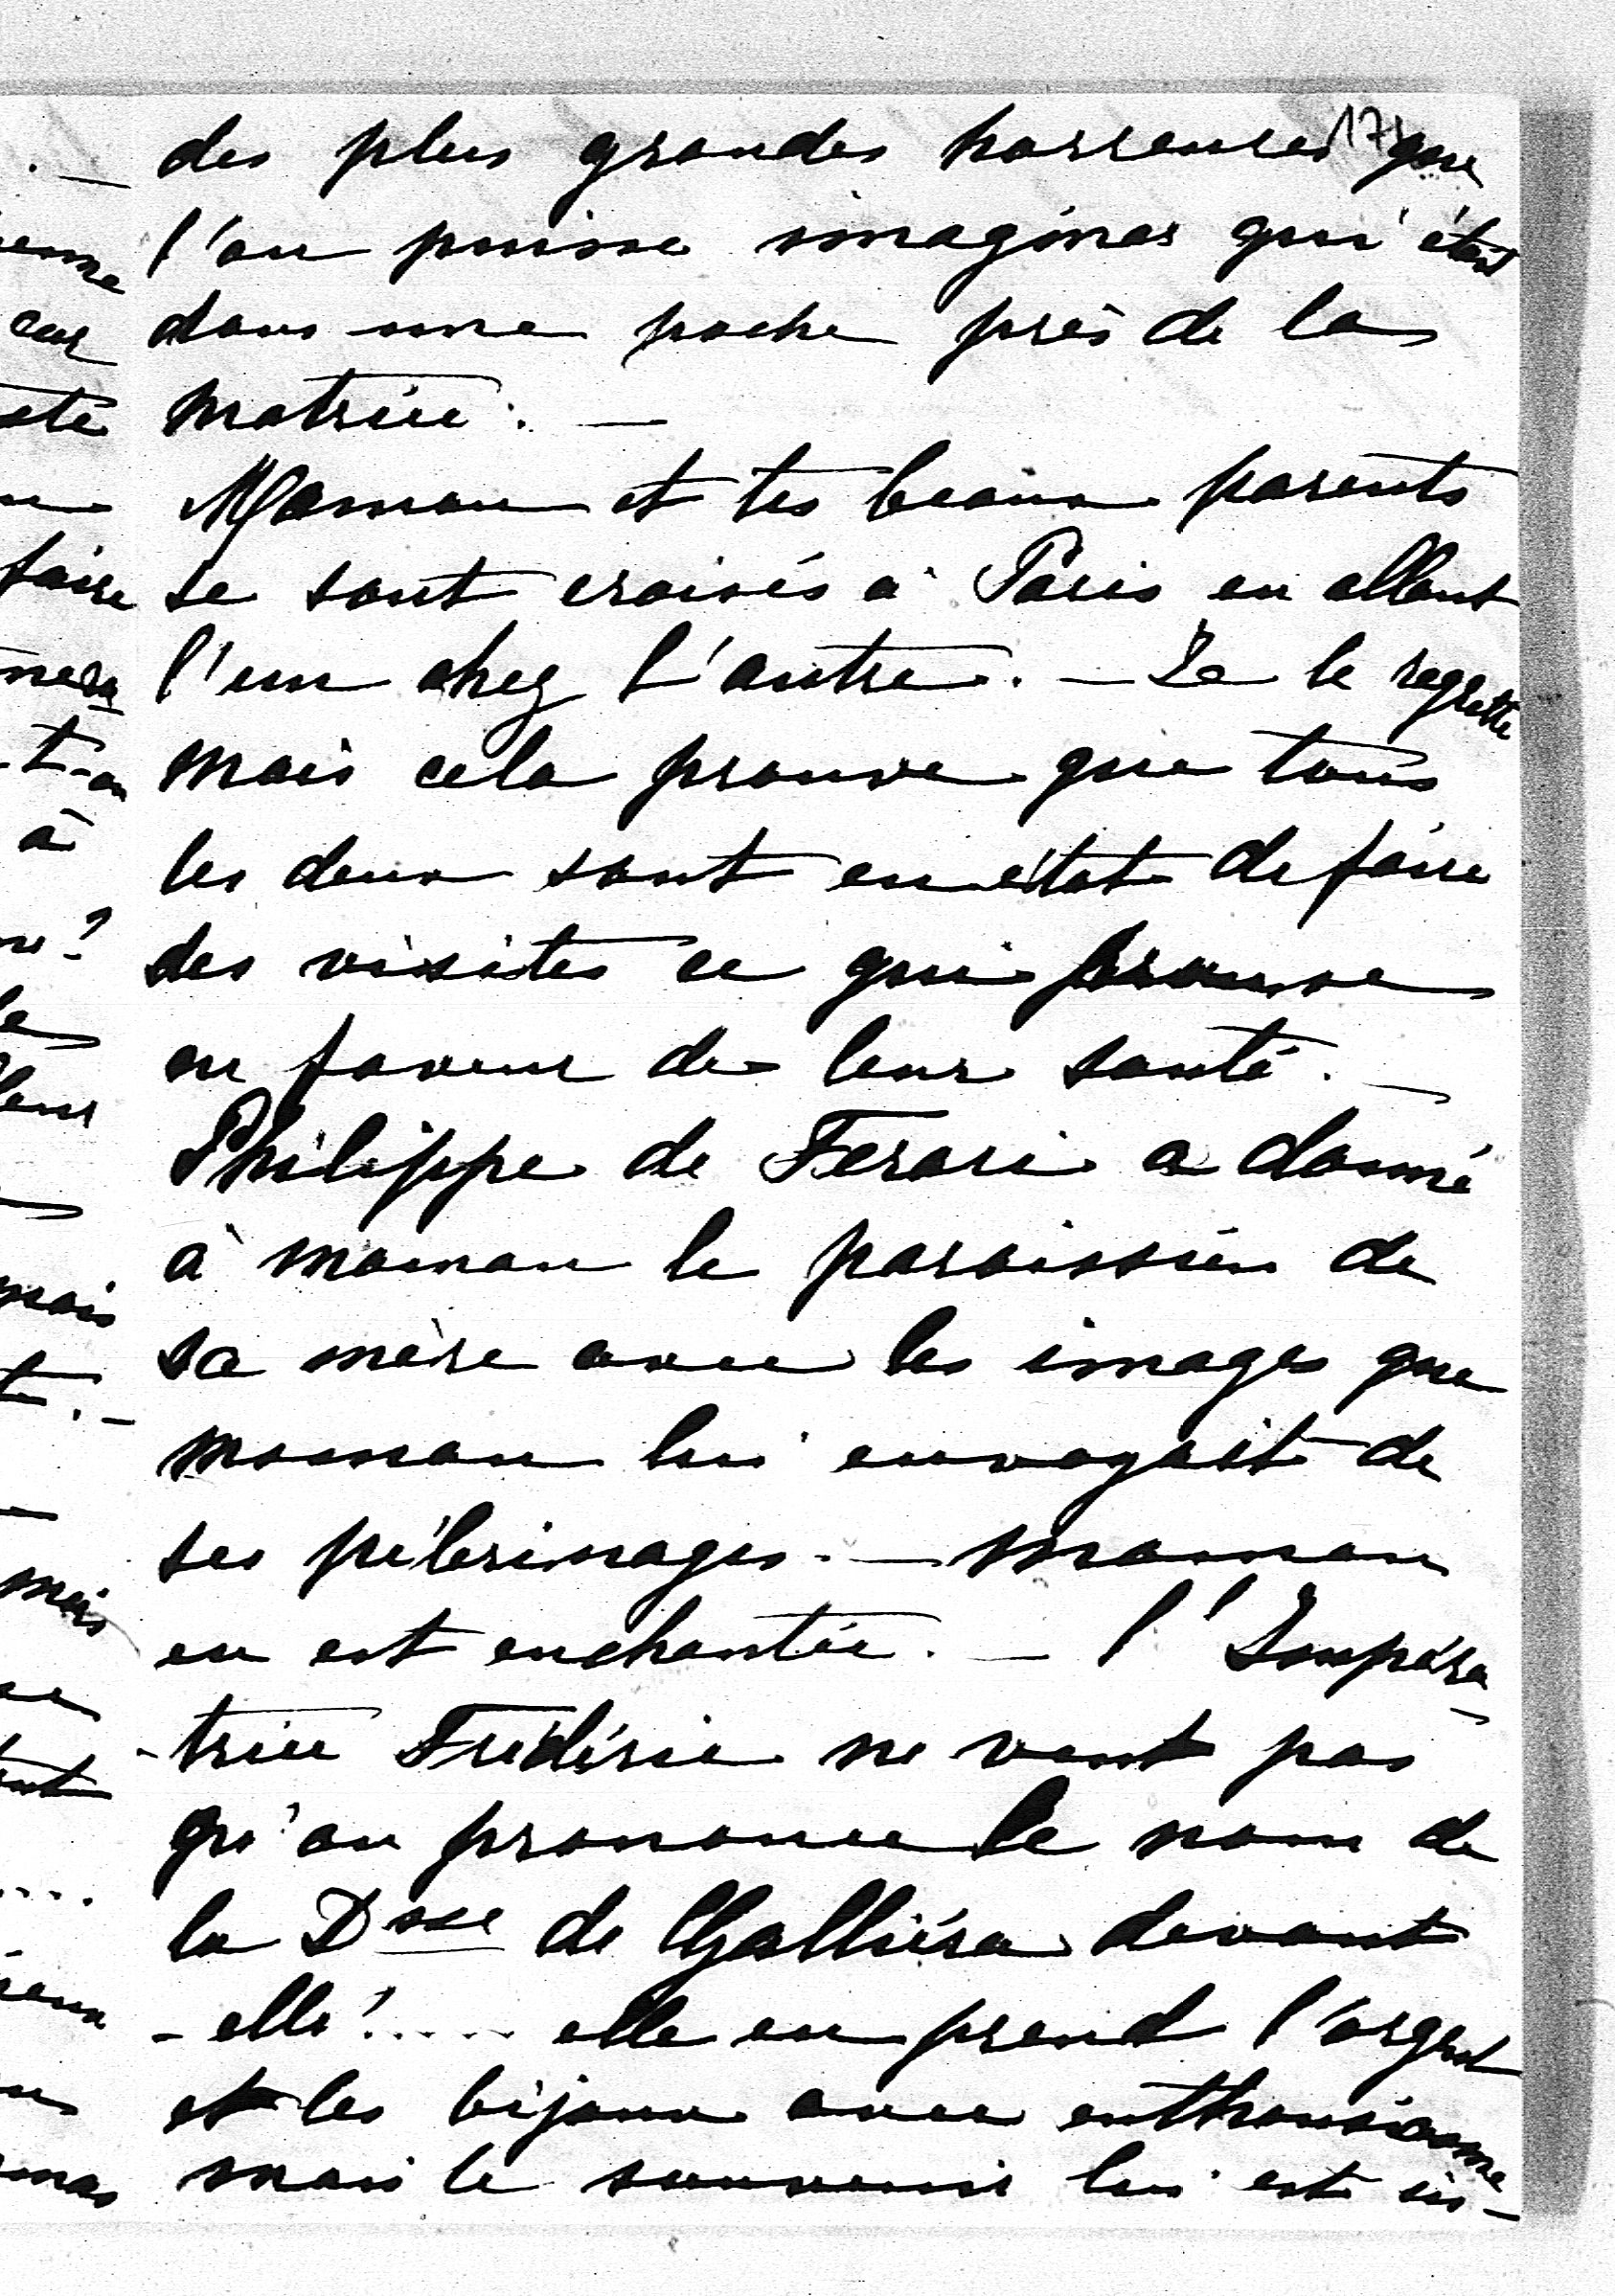 173
des plus grandes horreures que
l'on puisse imaginer qui était
dans une poche près de la
matrice. —
Maman et tes beaux parents
se sont croisés à Paris en allant
l'un chez l'autre. — Je le regrette
mais cela prouve que tous
les deux sont en état de faire
des visites ce qui prouve
en faveur de leur santé. —
Philippe de Ferari a donné
à maman le paroissien de
sa mère avec les images que
maman lui envoyait de
ses pélerinages. — Maman
en est enchantée. — l'Impéra-
-trice Frédéric ne veut pas
qu'on prononce le nom de
la Dsse de Galliéra devant
-elle!..... elle en prend l'argent
et les bijoux avec enthousiasme
mais le souvenir lui est in-